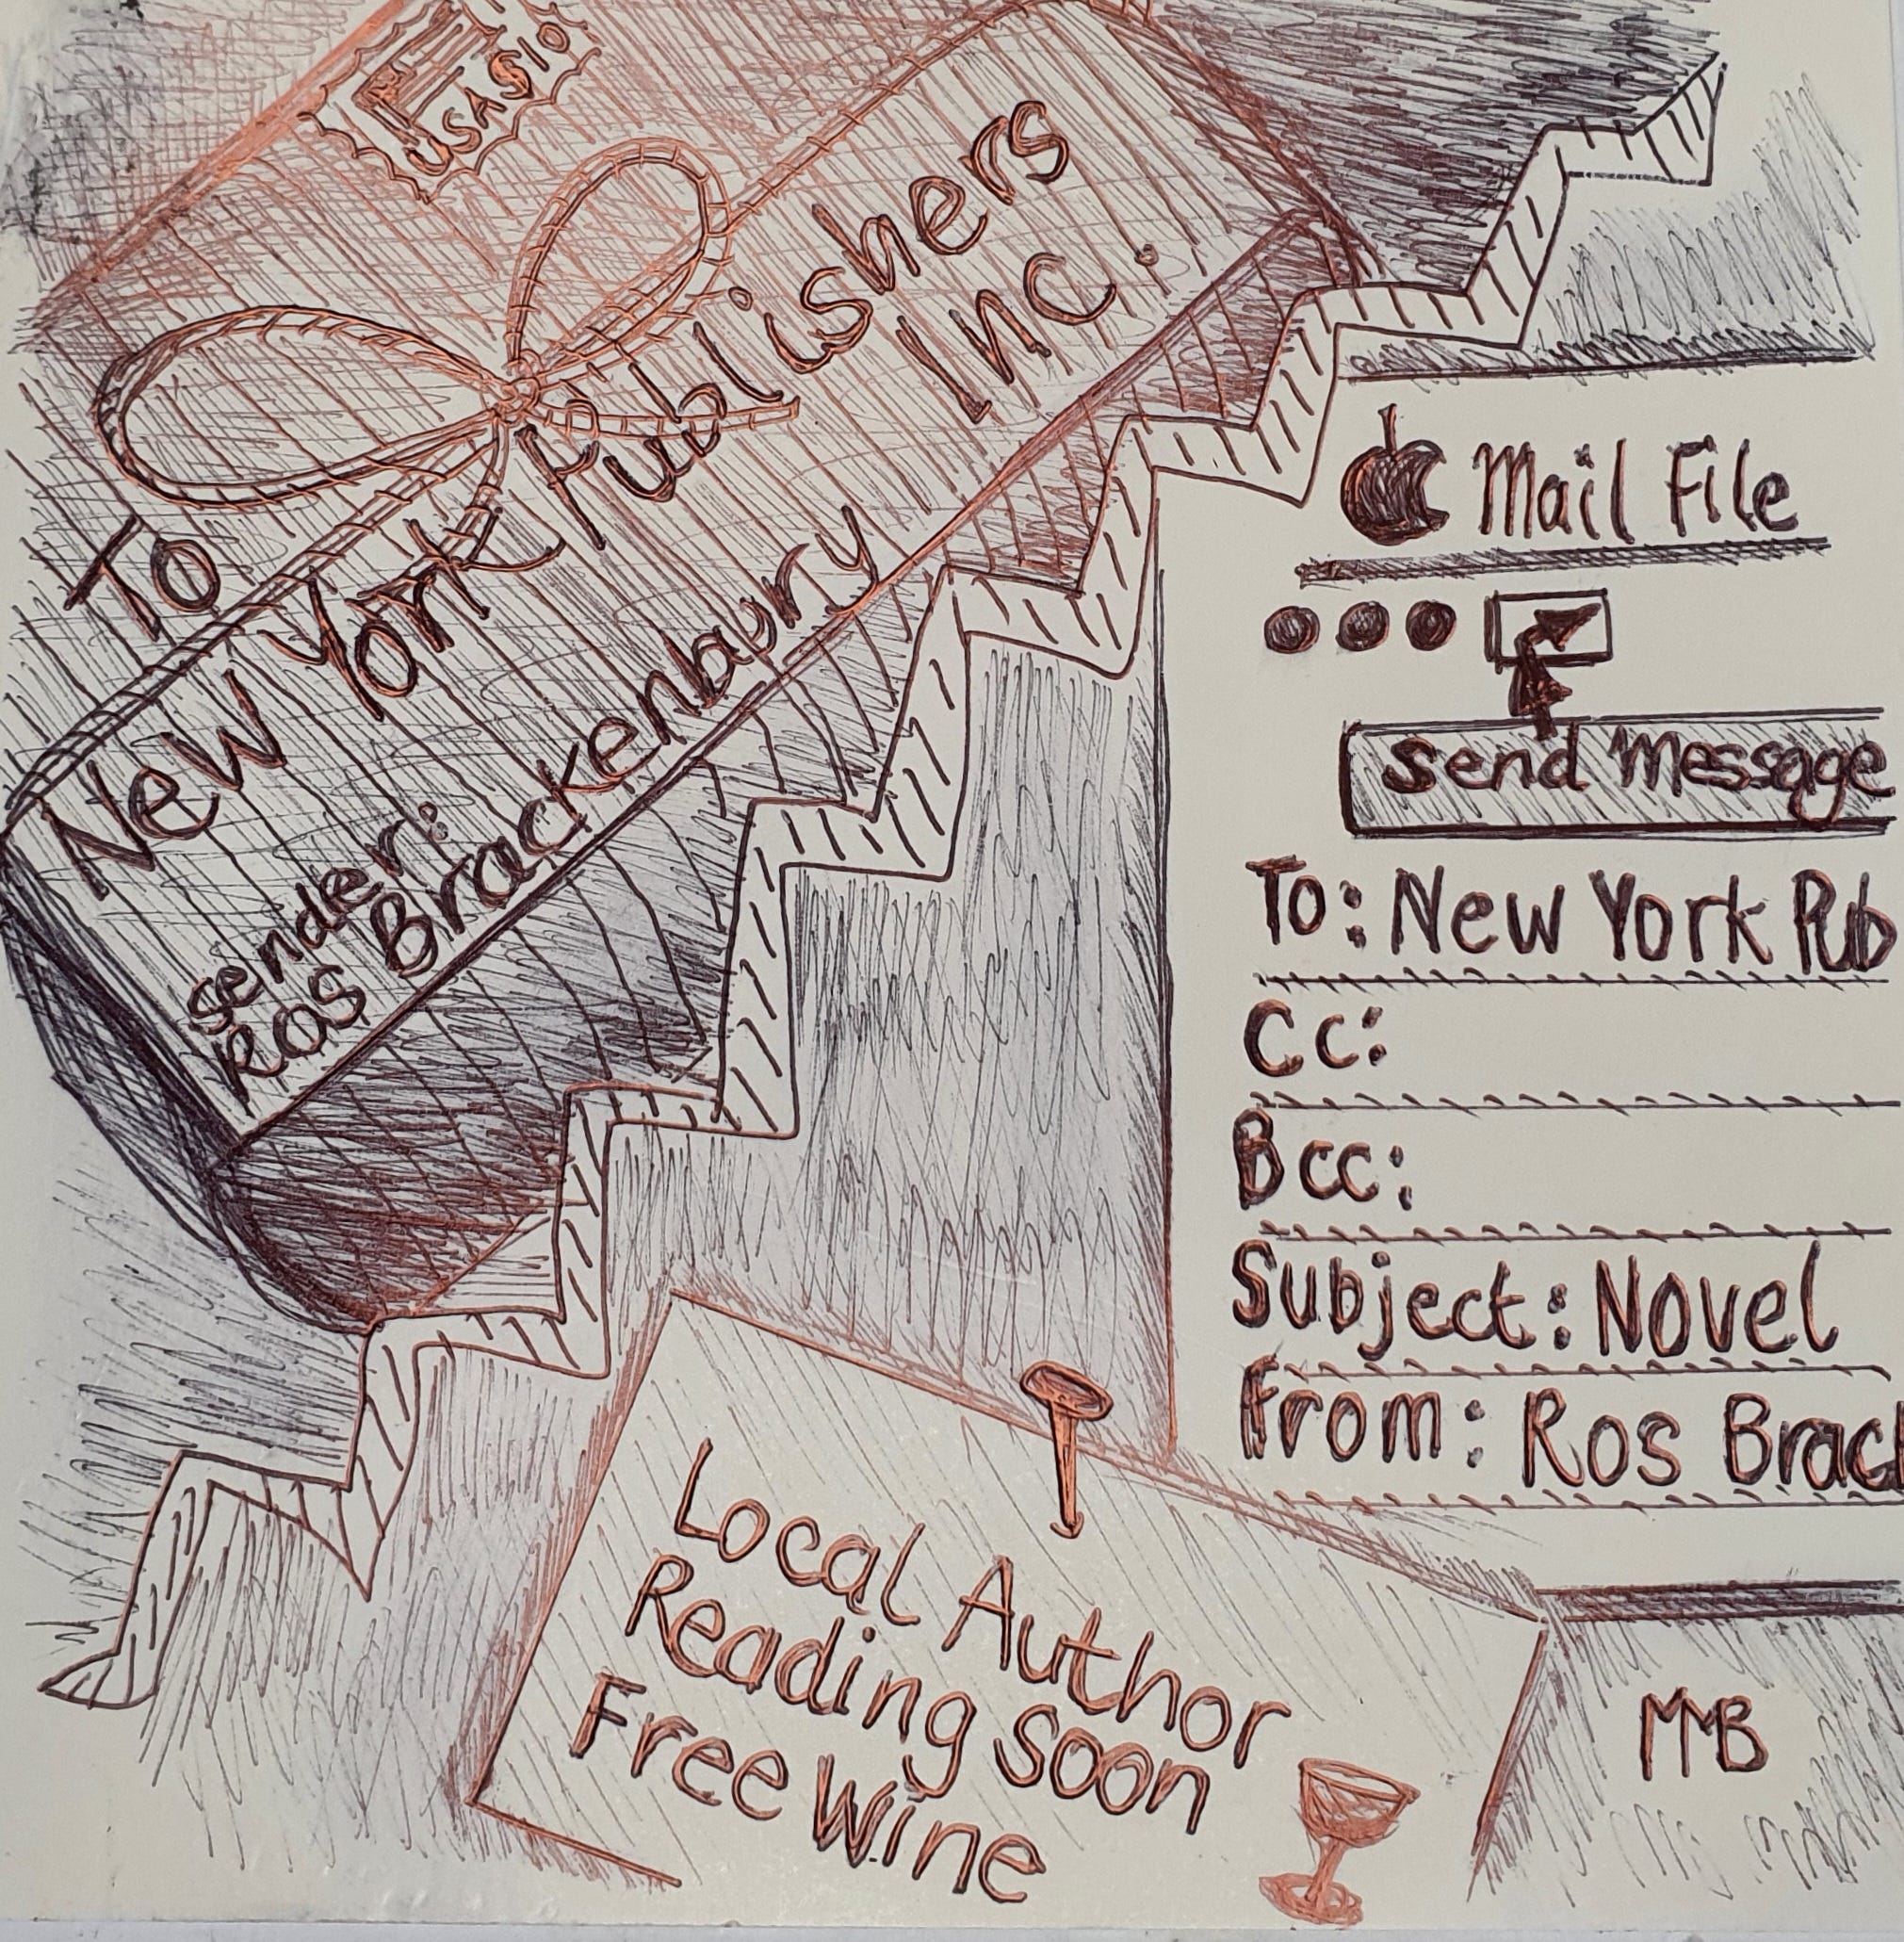 USA $10
To
New York Publishers
Inc.
sender:
Ros Brackenbury
Mail File
Send Message
To: New York Pub
Cc:
Bcc:
Subject: Novel
From: Ros Brack
Local Author
Reading Soon
Free Wine
MMB